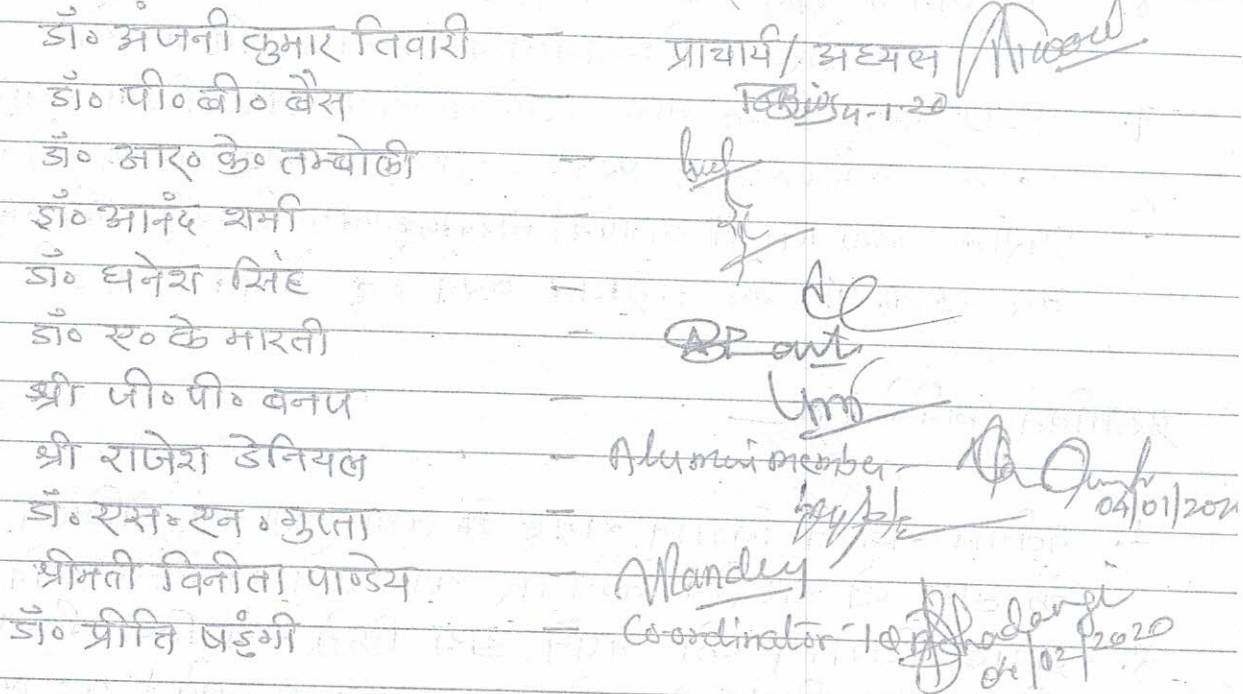 डॉ० अंजनी कुमार तिवारी — प्राचार्य / अध्यक्ष
डॉ० पी० बी० बैस — 4-1-20
डॉ० आर० के० तम्बोली —
डॉ० आनंद शर्मा —
डॉ० धनेश सिंह —
डॉ० ए० के भारती —
श्री जी० पी० बनज —
श्री राजेश डेनियल — Alumni member 04/01/202
डॉ० एस० एन० गुप्ता — Gupta
श्रीमती विनीता पाण्डेय — Pandey
डॉ० प्रीति षड़ंगी — Coordinator Shadangi
04/02/2020